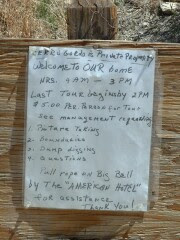 CERRO Gordo is Private Property
Welcome to OUR home
HRS. 9AM - 3PM
Last Tour begins by 2PM
$5.00 Per. Person for Tour
See management regarding
1. Picture Taking
2. Boundaries
3. Dump digging
4. Questions
Pull rope on Big Ball
by The "AMERICAN HOTEL"
for assistance.
THANK YOU!